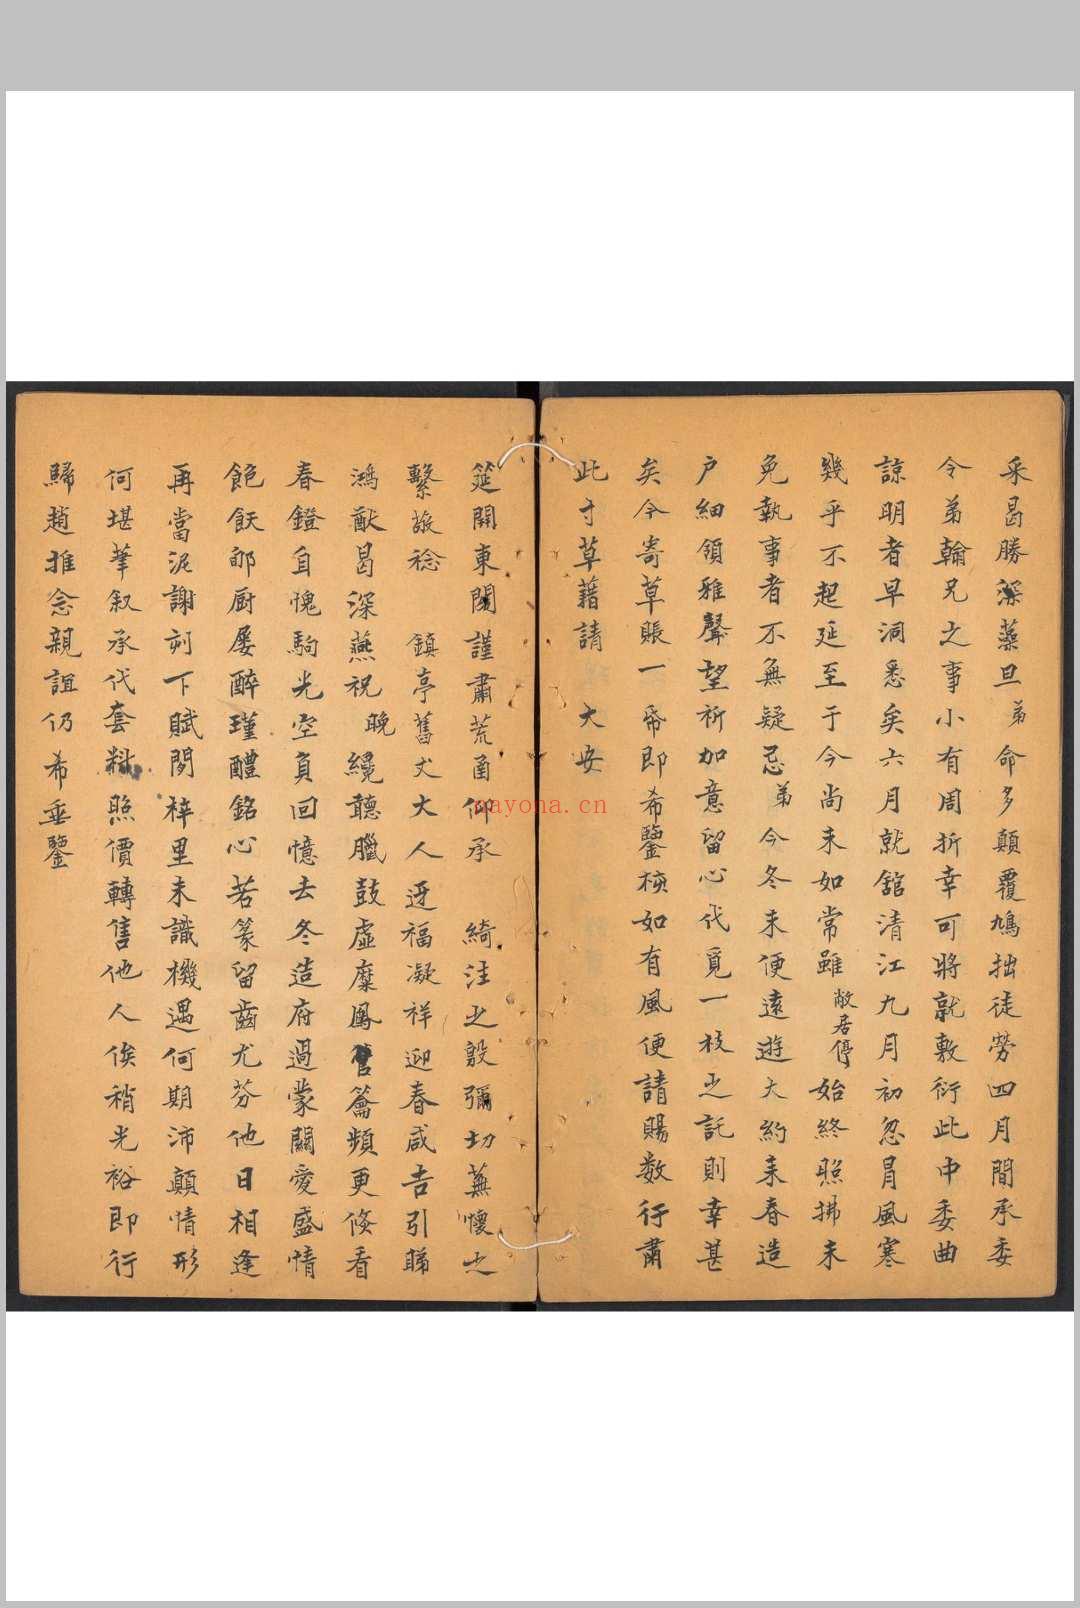 采曷勝深藻旦弟命多顛覆鳩拙徒勞四月間承委
令弟翰兄之事小有周折幸可將就敷衍此中委曲
諒明者早洞悉矣六月就舘清江九月初忽冐風寒
幾乎不起延至于今尚未如常雖敝居停始終照拂未
免執事者不無疑忌弟今冬未便遠遊大約来春造
户細領雅聲望祈加意留心代覓一枝之託則幸甚
矣今寄草賬一帋即希鑒核如有風便請賜数行肅
此寸草藉請 大安
筵開東閣謹肅荒函仰承 綺注之殷彌切蕪懷之
繫敬稔 鎮亭舊丈大人迓福凝祥迎春咸吉引睇
鴻猷曷深燕祝 晚纔聽臘鼓虛糜鳳管籥頻更倏看
春鐙自愧駒光空負回憶去冬造府過蒙關愛盛情
飽飫郇厨屡醉瑾醴銘心若篆留齒尤芬他日相逢
再當泥謝刻下賦閒梓里未識機遇何期沛顛情形
何堪筆叙承代套料照價轉售他人俟稍光裕即行
歸趙推念親誼仍希垂鑒
nayona.cn